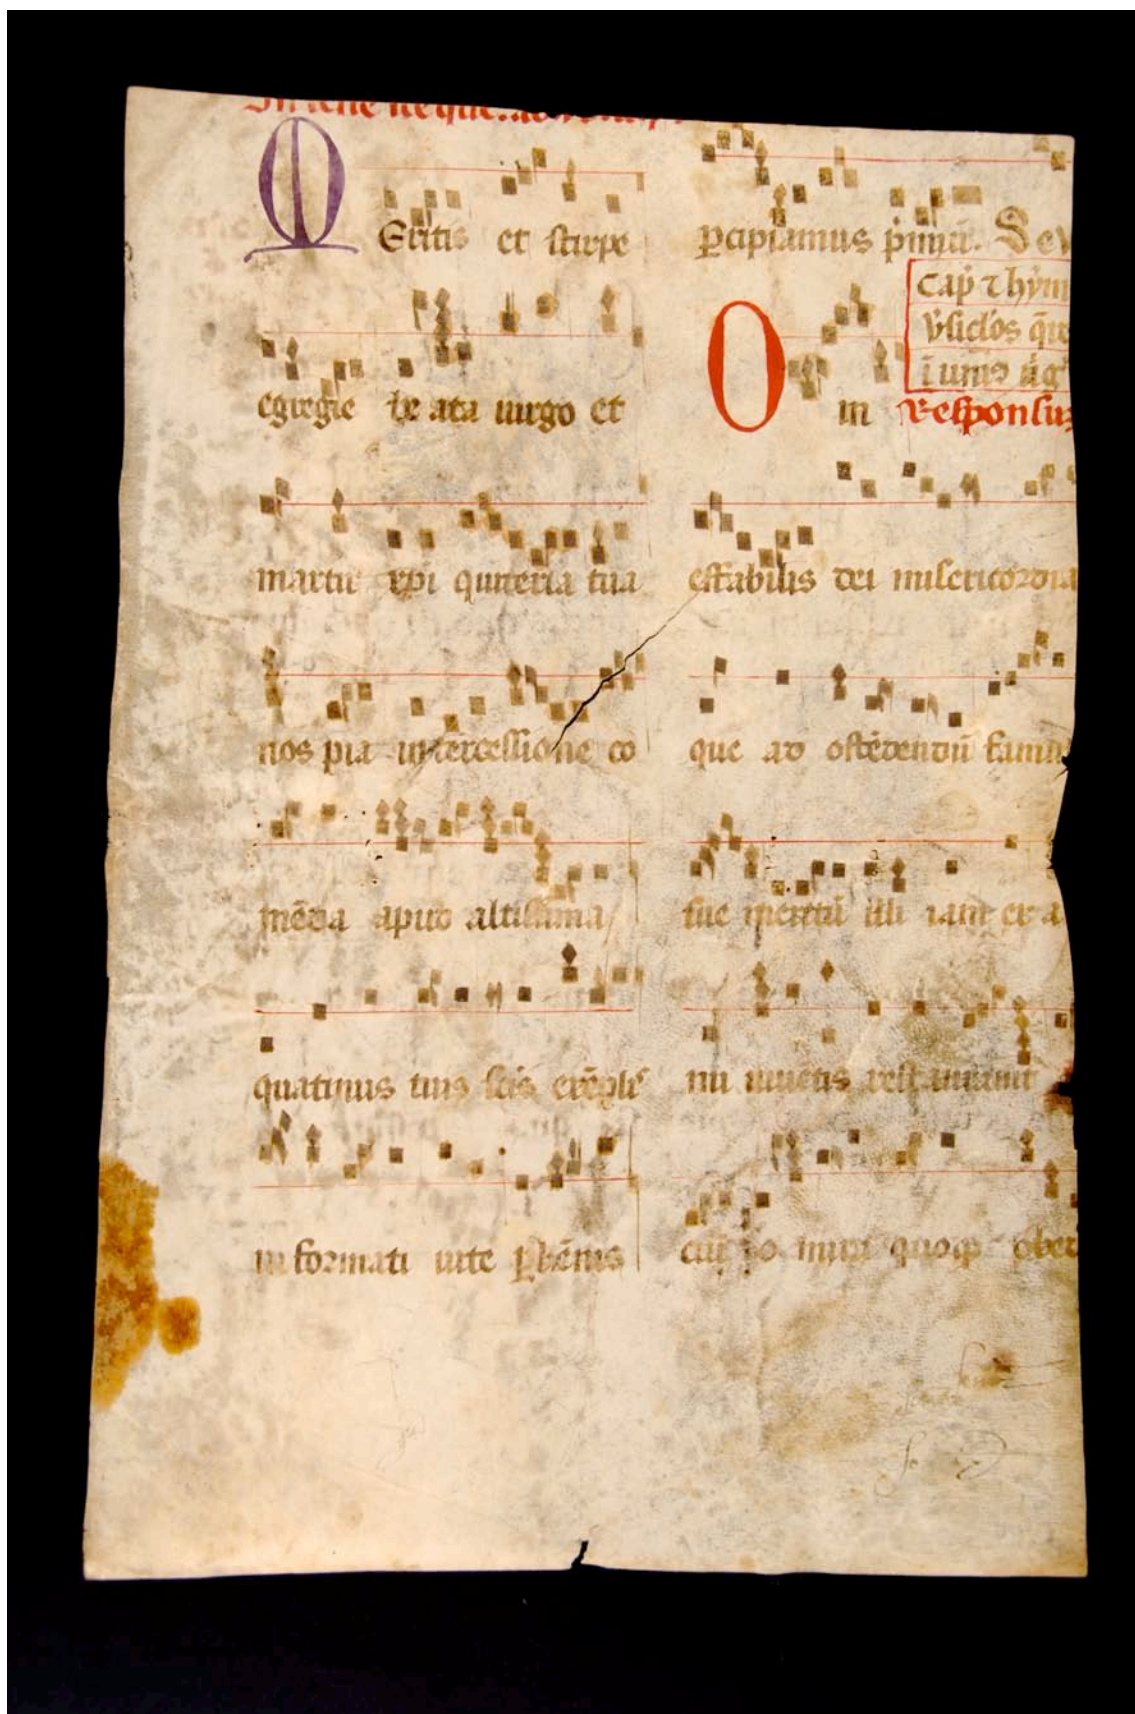 MEritis et stirpe
egregie be ata uirgo et
martir xpi quiteria tua
nos pia intercessione co
mēda apud altissima
quatinus tuis scīs exēplis
in formati uite phēnis
pcipiamus pimiū.
Cap̄ ⁊ hȳm
v̄siclos
O in Responsus
effabilis dei misericordia
que ad ostēdendū famu
sue meritū illi iam ex a
ni iuuenis restaurauit
mira quoqꝫ obed